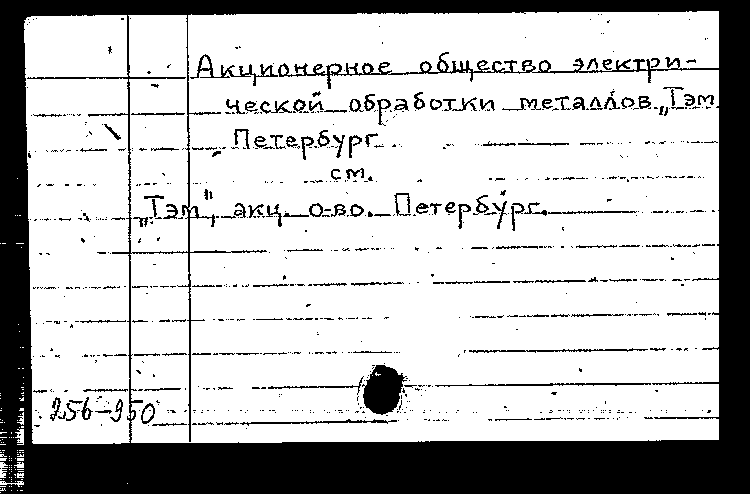 Акционерное общество электри-
ческой обработки металлов „Тэм
Петербург
см.
„Тэм", акц. о-во. Петербург.
256-250